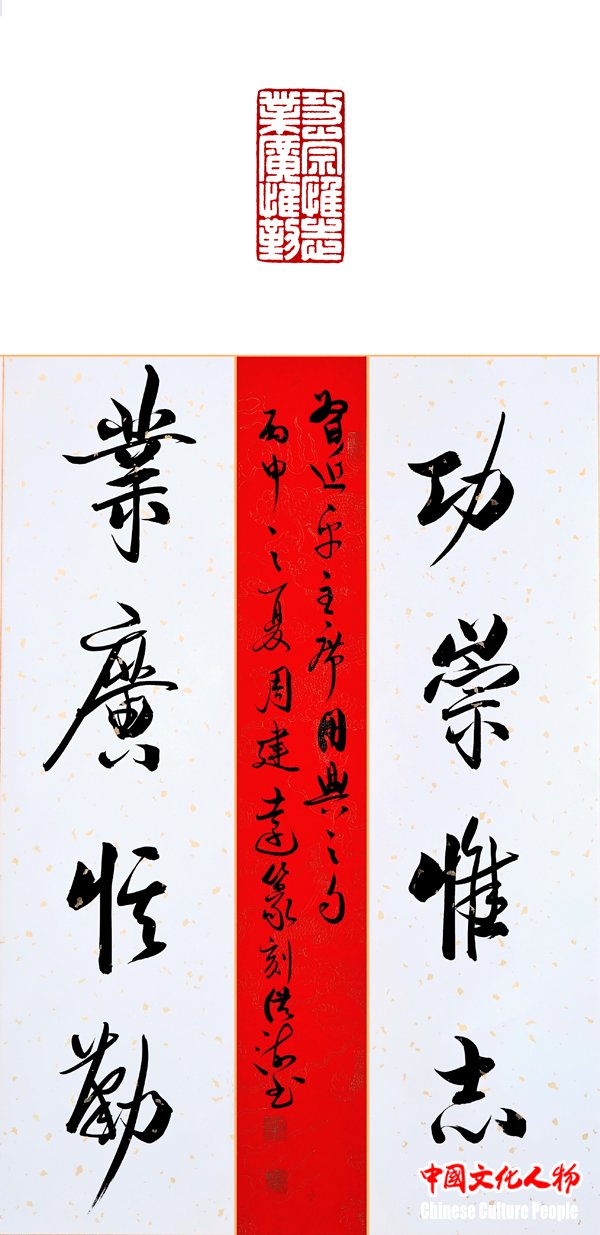 功崇惟志
業廣惟勤
功崇惟志
習近平主席用典之句
丙申之夏周建篆刻洪书
業廣惟勤
中國文化人物
Chinese Culture People